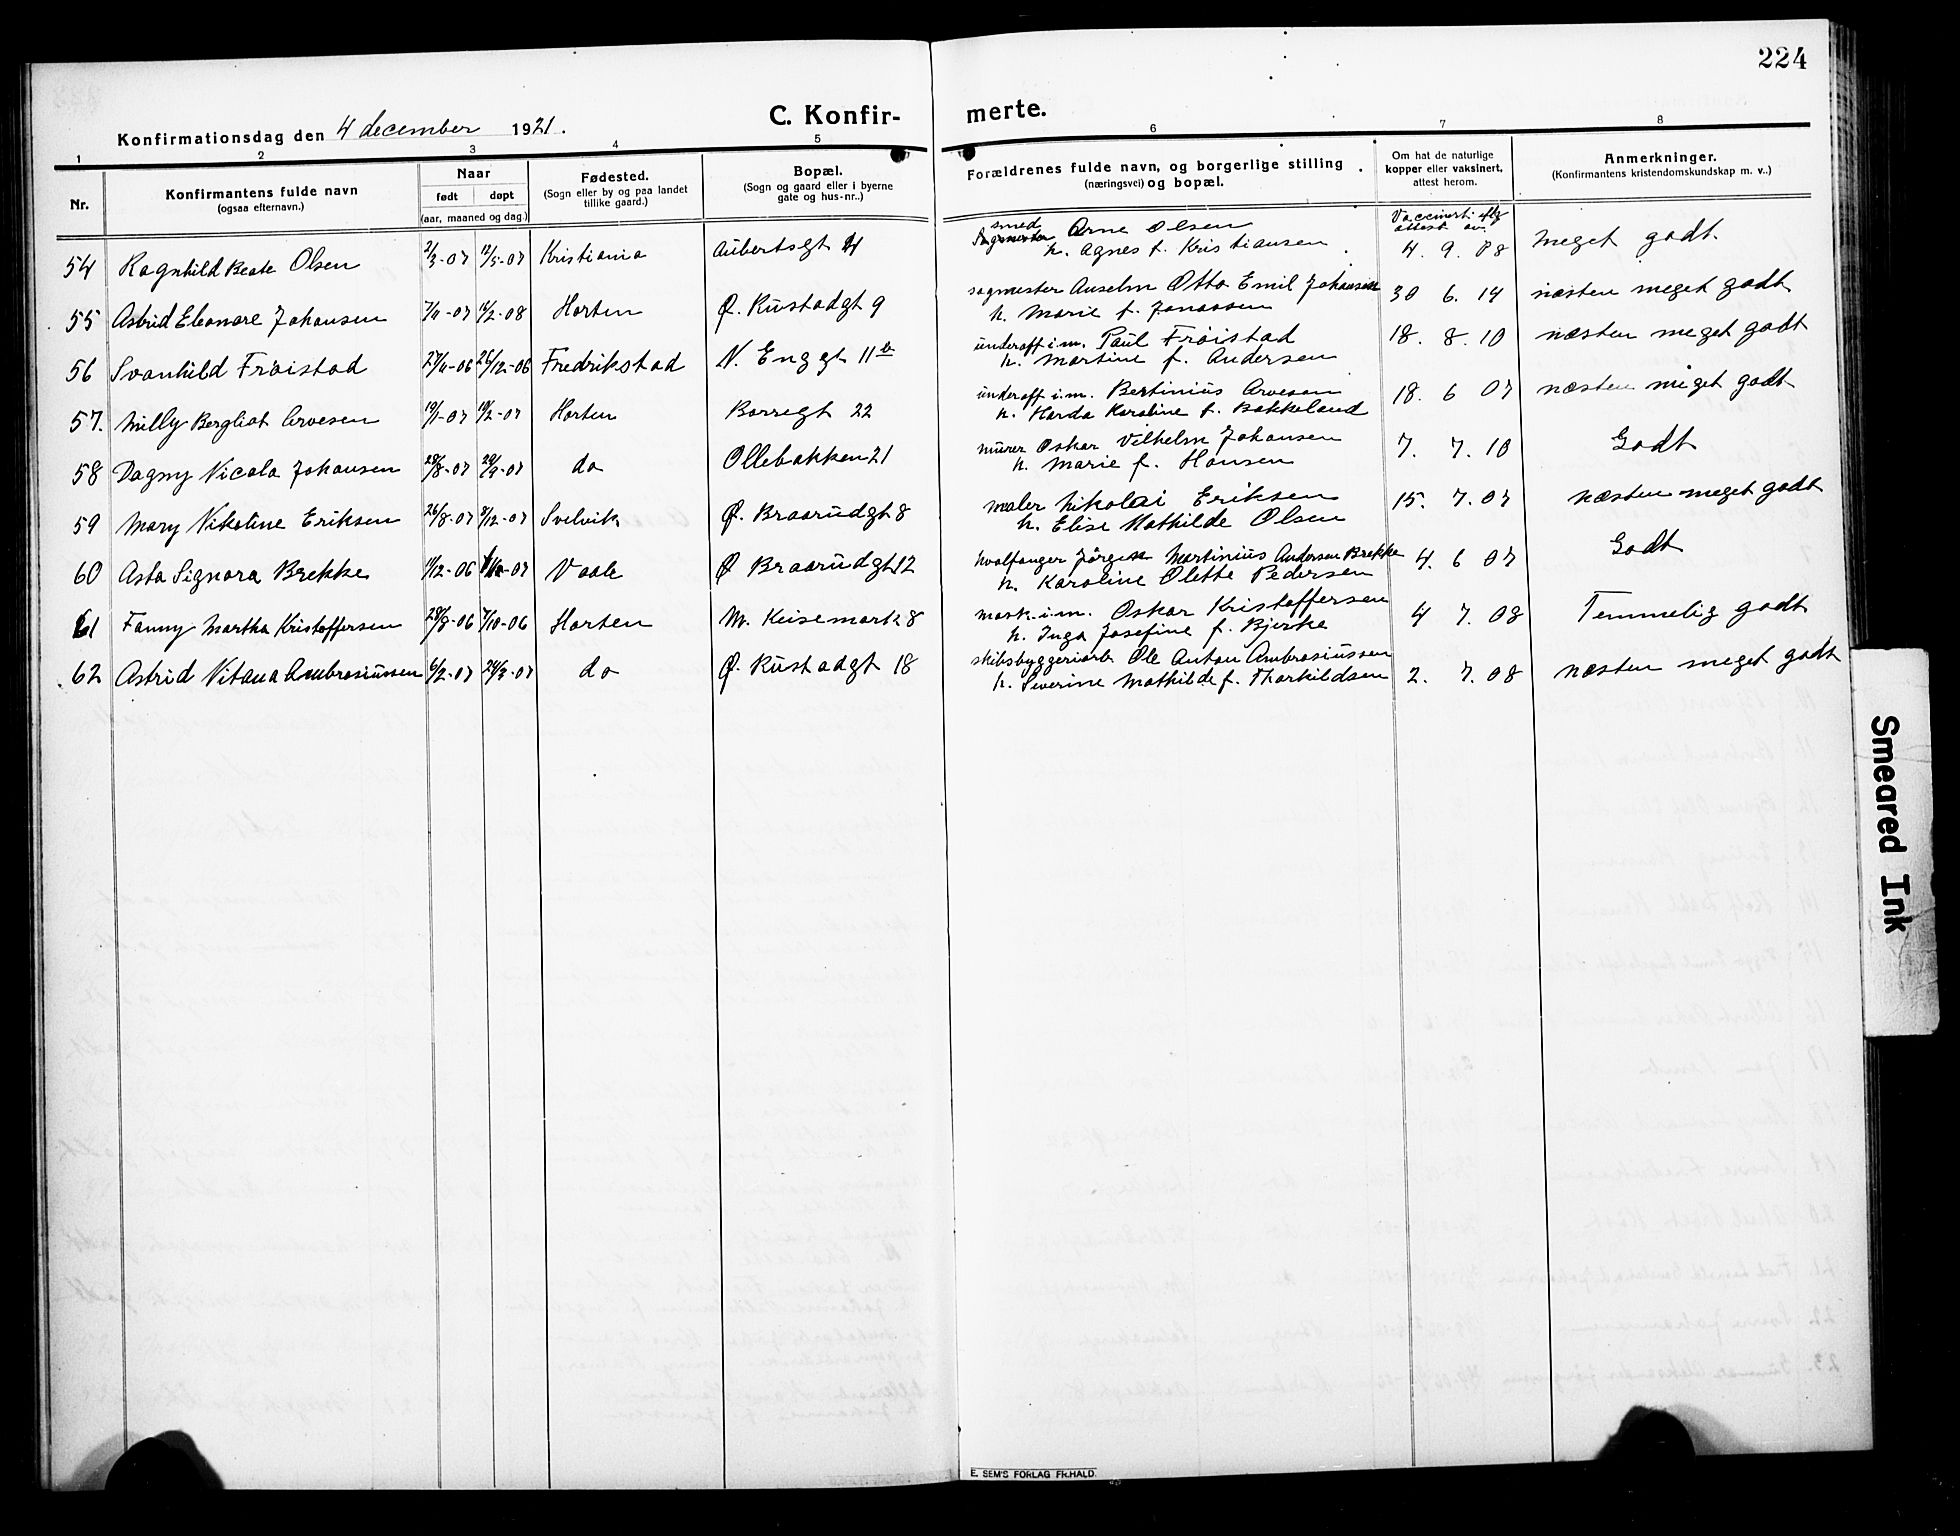 224
Konfirmationsdag den 4 december 1921.
C. Konfir- merte.
1 2 3 4 5 6 7 8
Nr.
Konfirmantens fulde navn
(ogsaa efternavn.)
Naar
født døpt
(aar, maaned og dag.)
Fødested.
(Sogn eller by og paa landet
tillike gaard.)
Bopæl.
(Sogn og gaard eller i byerne
gate og hus-nr..)
Forældrenes fulde navn, og borgerlige stilling
(næringsvei) og bopæl.
Om hat de naturlige
kopper eller vaksinert,
attest herom.
Anmerkninger.
(Konfirmantens kristendomskundskap m. v..)
Vaccinert iflg
attest av
smed Arne Olsen
54 Ragnhild Beate Olsen 2/3-07 12/5-07 Kristiania Aubertsgt 4 h. Agnes f. Kristiansen 4. 9. 08 Meget godt.
sagmester Anselm Otto Emil Johansen
55 Astrid Eleonore Johansen 7/11-07 16/2-08 Horten Ø. Rustadgt 9 h. Marie f. Jonassen 30 6. 14 næsten meget godt
underoff i.m. Paul Frøistad
56 Svanhild Frøistad 27/11-06 26/12-06 Fredrikstad N. Enggt 11 b h. Martine f. Andersen 18. 8. 10 næsten meget godt
underoff i.m. Bertinius Arvesen
57. Milly Bergliot Arvesen 19/1-07 10/2-07 Horten Borregt 22 h. Harda Karoline f. Bakkeland 18. 6 07 næsten meget godt
murer Oskar Vilhelm Johansen
58 Dagny Nicola Johansen 28/8-07 29/9-07 do Ollebakken 21 h. Marie f. Hansen 7. 7. 10 Godt
maler Nikolai Eriksen
59 Mary Nikoline Eriksen 26/8-07 8/12-07 Svelvik Ø. Braarudgt 8 h. Elise Mathilde Olsen 15. 7. 07 næsten meget godt
hvalfanger Jörgen Martinius Andersen Brekke
60 Asta Signora Brekke 11/12-06 -07 Vaale Ø Braarudgt 12 h. Karoline Olette Pedersen 4. 6 07 Godt
mask. i.m. Oskar Kristoffersen
61 Fanny Martha Kristoffersen 28/8-06 7/10-06 Horten M. Keisemark 8 h. Inga Josefine f. Bjerke 4 7. 08 Temmelig godt
skibsbyggeriarb Ole Anton Ambrosiussen
62 Astrid Vitana Ambrosiussen 6/2-07 24/3-07 do Ø. Rustadgt 18 h. Severine Mathilde f. Thorkildsen 2. 7. 08 næsten meget godt
E. SEM'S FORLAG FR.HALD.
Smeared Ink